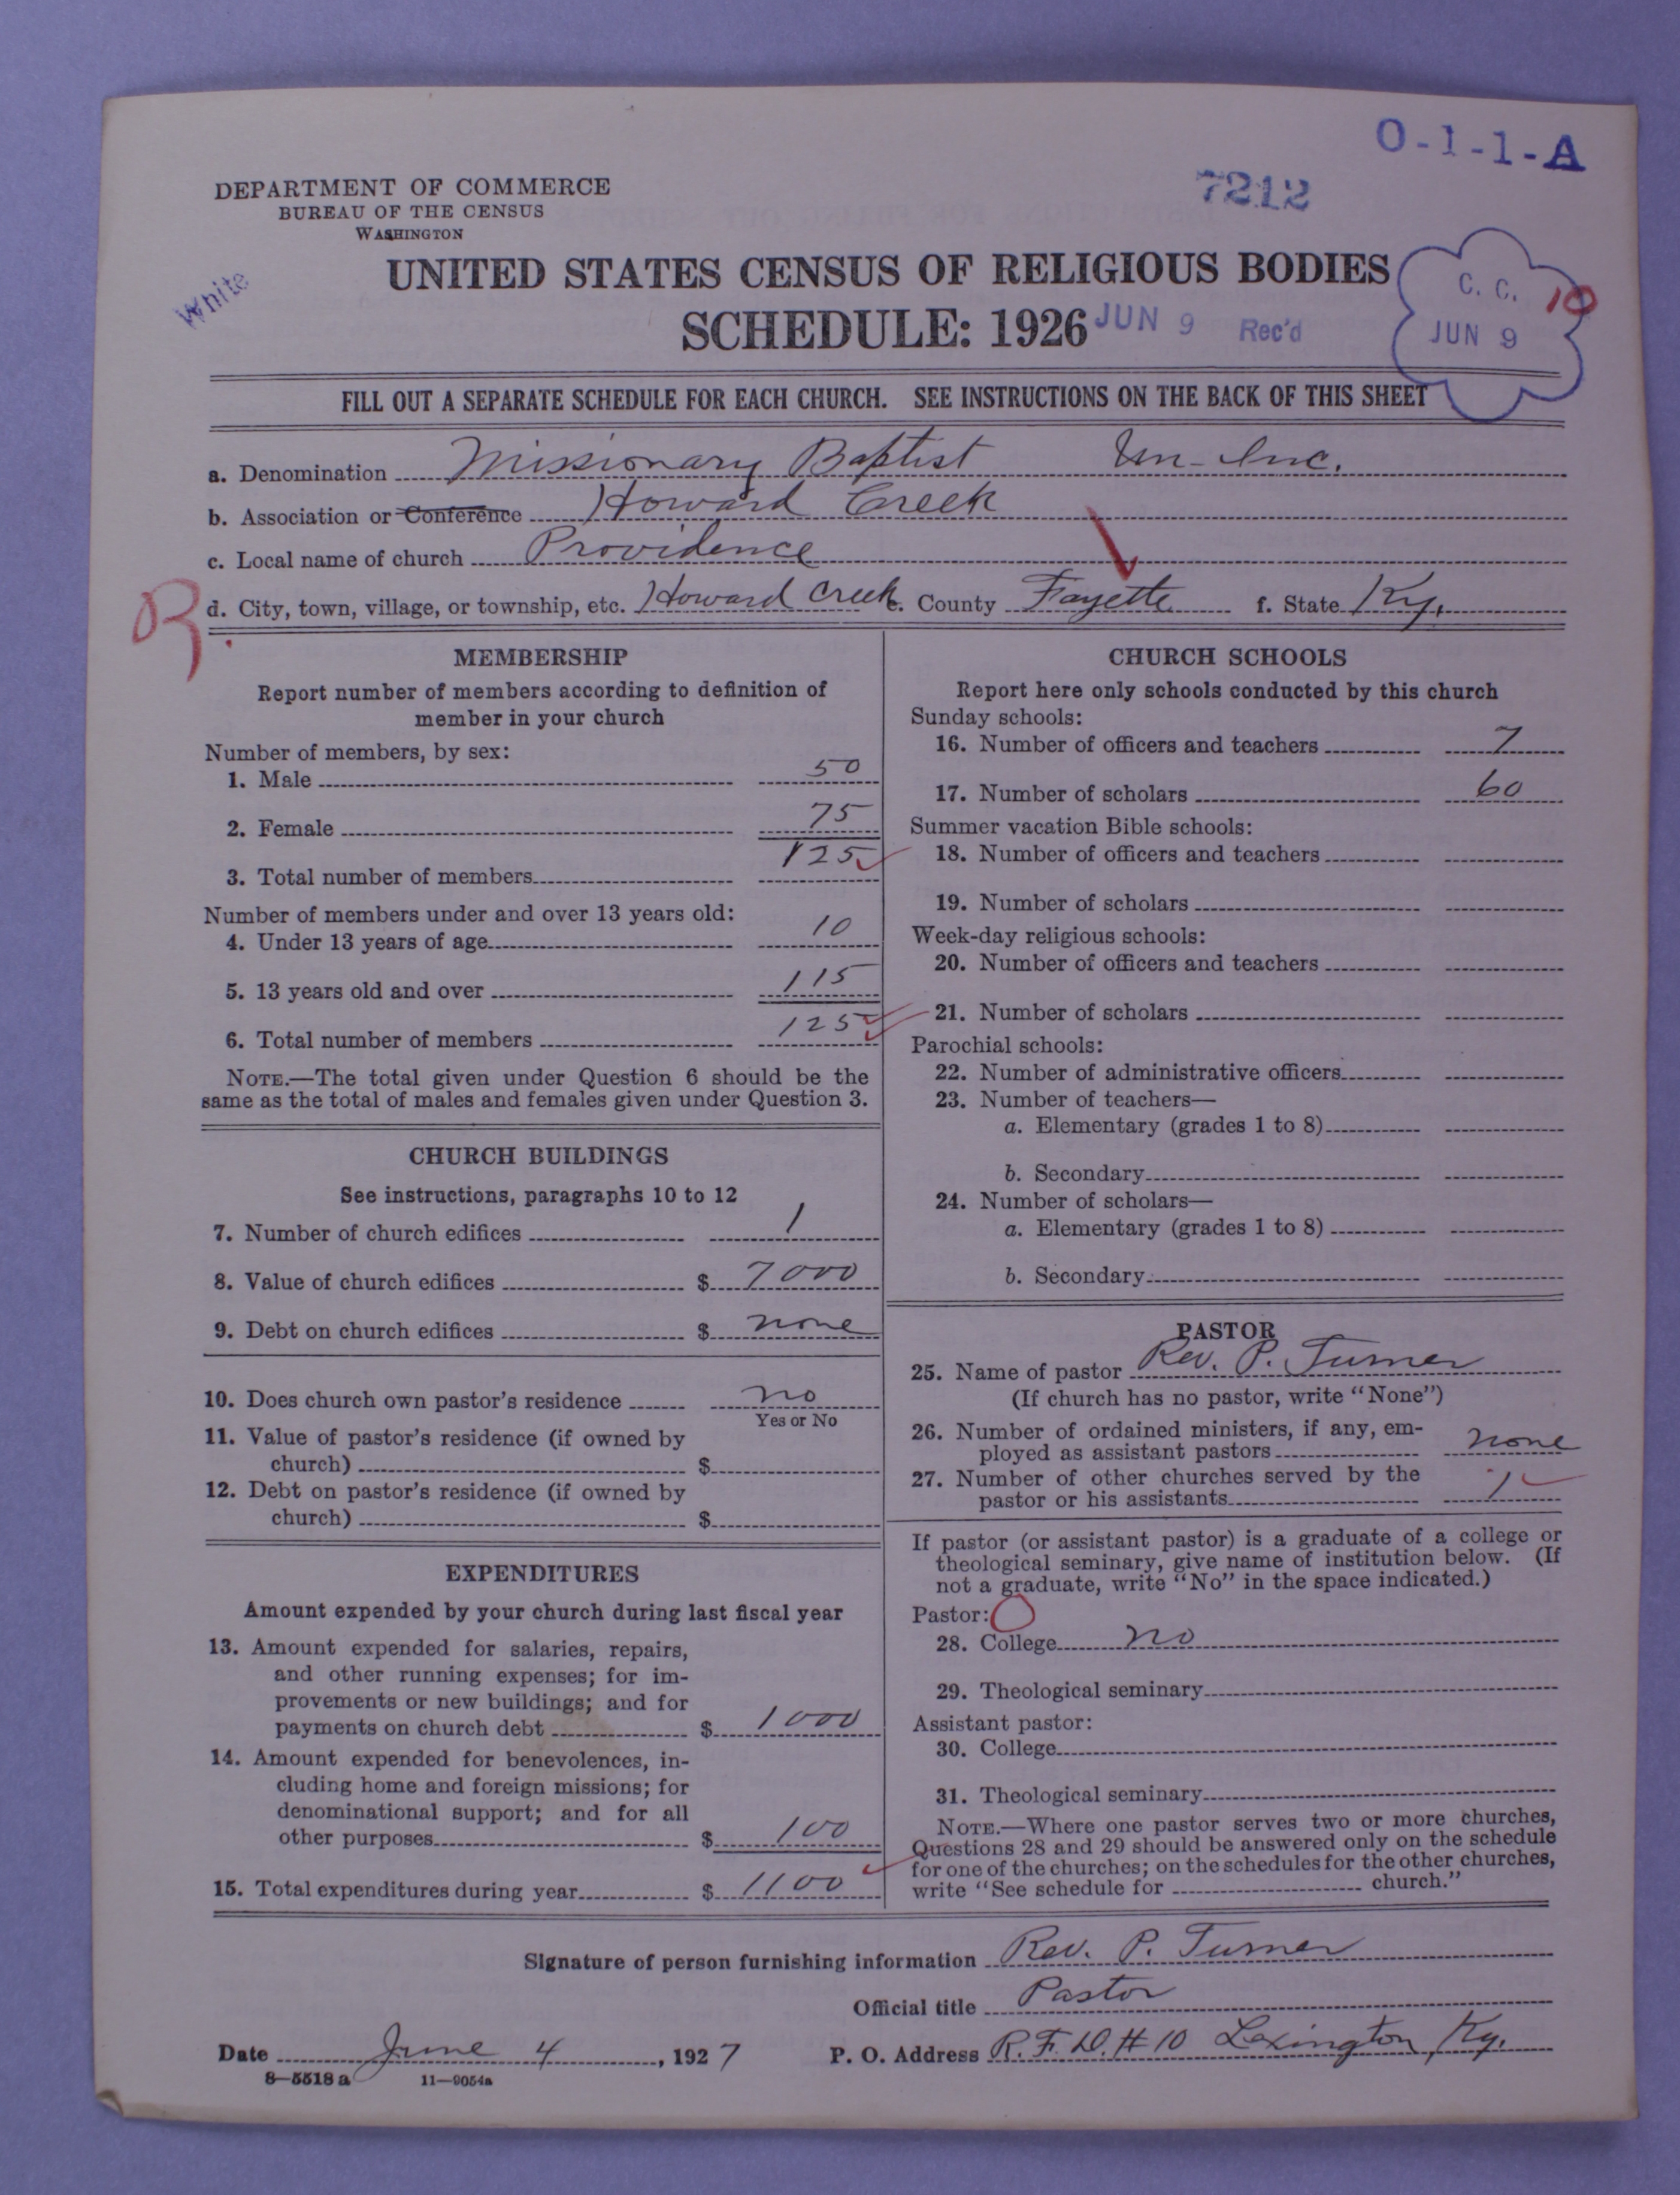 O-1-1-A
7212
DEPARTMENT OF COMMERCE
BUREAU OF THE CENSUS
WASHINGTON
White
UNITED STATES CENSUS OF RELIGIOUS BODIES
SCHEDULE: 1926
JUN 9 Rec'd
C. C. 10
JUN 9
FILL OUT A SEPARATE SCHEDULE FOR EACH CHURCH. SEE INSTRUCTIONS ON THE BACK OF THIS SHEET
a. Denomination Missionary Baptist Un-Inc.
b. Association or Conference Howard Creek
c. Local name of church Providence
R. d. City, town, village, or township, etc. Howard Creek e. County Fayette f. State Ky.
MEMBERSHIP
Report number of members according to definition of
member in your church
Number of members, by sex:
1. Male 50
2. Female 75
3. Total number of members 125
Number of members under and over 13 years old:
4. Under 13 years of age 10
5. 13 years old and over 115
6. Total number of members 125
NOTE.—The total given under Question 6 should be the
same as the total of males and females given under Question 3.
CHURCH BUILDINGS
See instructions, paragraphs 10 to 12
7. Number of church edifices 1
8. Value of church edifices $ 7000
9. Debt on church edifices $ none
10. Does church own pastor's residence no
Yes or No
11. Value of pastor's residence (if owned by
church) $
12. Debt on pastor's residence (if owned by
church) $
EXPENDITURES
Amount expended by your church during last fiscal year
13. Amount expended for salaries, repairs,
and other running expenses; for im-
provements or new buildings; and for
payments on church debt $ 1000
14. Amount expended for benevolences, in-
cluding home and foreign missions; for
denominational support; and for all
other purposes $ 100
15. Total expenditures during year $ 1100
CHURCH SCHOOLS
Report here only schools conducted by this church
Sunday schools:
16. Number of officers and teachers 7
17. Number of scholars 60
Summer vacation Bible schools:
18. Number of officers and teachers
19. Number of scholars
Week-day religious schools:
20. Number of officers and teachers
21. Number of scholars
Parochial schools:
22. Number of administrative officers
23. Number of teachers—
a. Elementary (grades 1 to 8)
b. Secondary
24. Number of scholars—
a. Elementary (grades 1 to 8)
b. Secondary
PASTOR
25. Name of pastor Rev. P. Turner
(If church has no pastor, write "None")
26. Number of ordained ministers, if any, em-
ployed as assistant pastors none
27. Number of other churches served by the
pastor or his assistants 1
If pastor (or assistant pastor) is a graduate of a college or
theological seminary, give name of institution below. (If
not a graduate, write "No" in the space indicated.)
Pastor:
28. College no
29. Theological seminary
Assistant pastor:
30. College
31. Theological seminary
NOTE.—Where one pastor serves two or more churches,
Questions 28 and 29 should be answered only on the schedule
for one of the churches; on the schedules for the other churches,
write "See schedule for church."
Signature of person furnishing information Rev. P. Turner
Official title Pastor
Date June 4, 1927 P. O. Address R.F.D. #10 Lexington, Ky.
8—5518 a 11—9054a